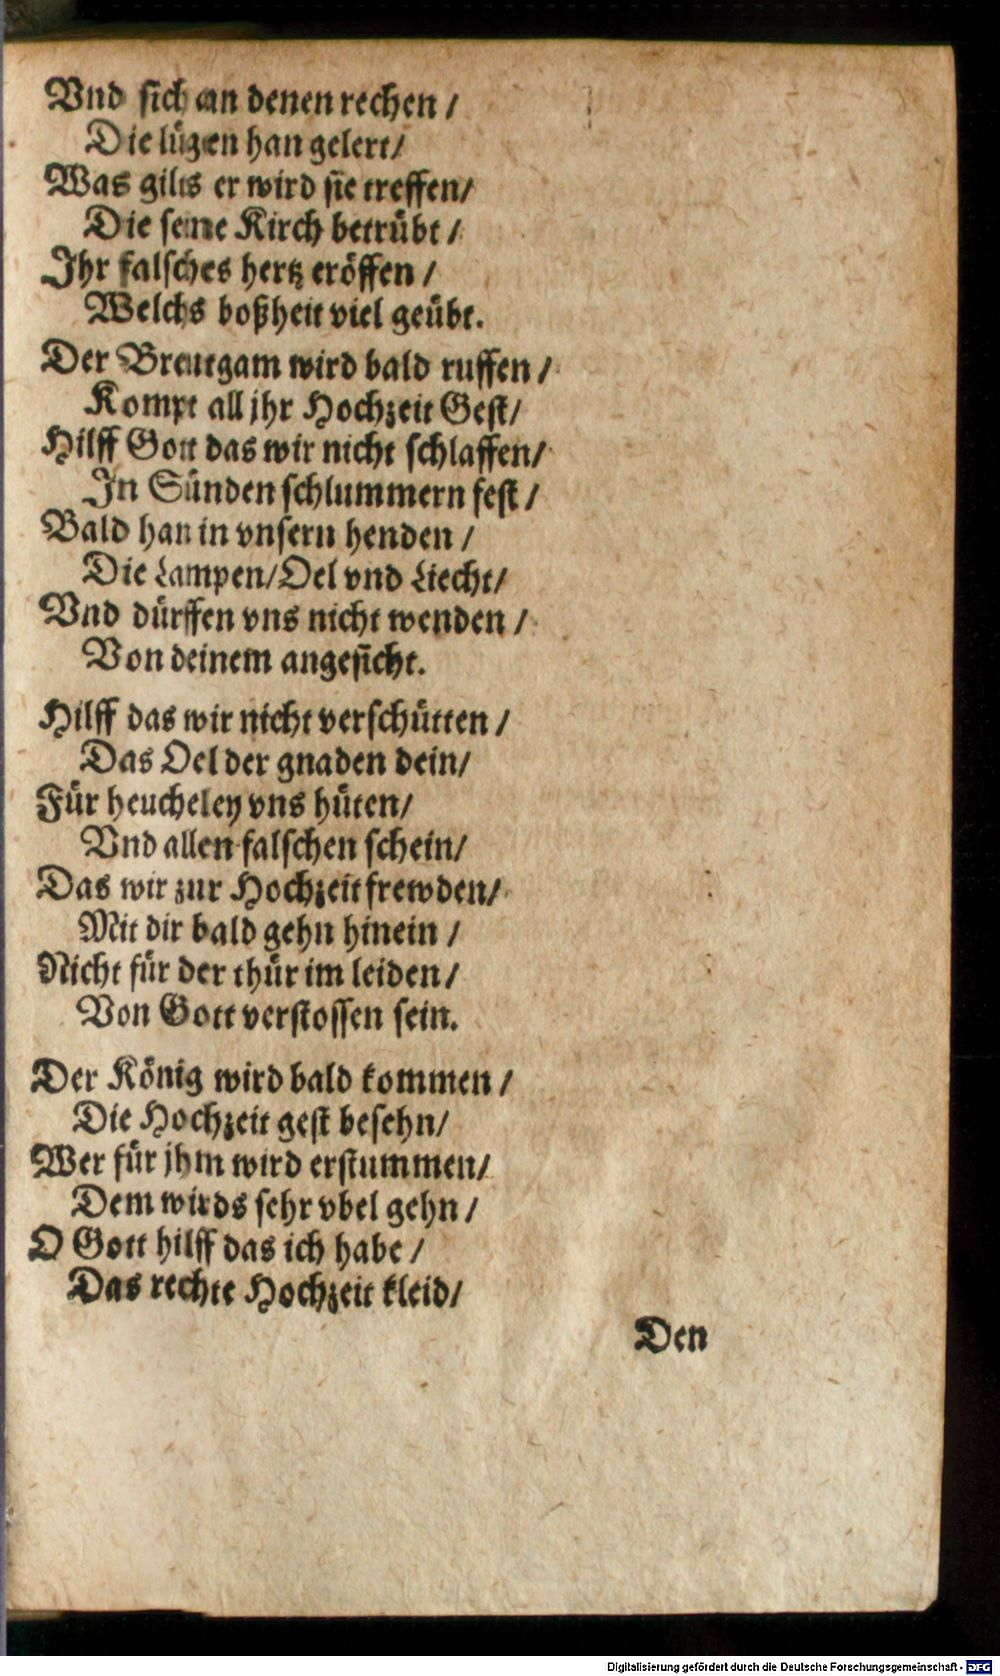 Vnd sich an denen rechen /
Die lügen han gelert/
Was gilts er wird sie treffen/
Die seine Kirch betrübt /
Ihr falsches hertz eröffen /
Welchs boßheit viel geübt.
Der Breutgam wird bald ruffen /
Kompt all jhr Hochzeit Gest/
Hilff Gott das wir nicht schlaffen/
In Sünden schlummern fest /
Bald han in vnsern henden /
Die Lampen/Oel vnd Liecht/
Vnd dürffen vns nicht wenden /
Von deinem angesicht.
Hilff das wir nicht verschütten /
Das Oel der gnaden dein/
Für heucheley vns hüten/
Vnd allen falschen schein/
Das wir zur Hochzeit frewden/
Mit dir bald gehn hinein /
Nicht für der thür im leiden/
Von Gott verstossen sein.
Der König wird bald kommen /
Die Hochzeit gest besehn/
Wer für jhm wird erstummen/
Dem wirds sehr vbel gehn /
O Gott hilff das ich habe /
Das rechte Hochzeit kleid/
Den
Digitalisierung gefördert durch die Deutsche Forschungsgemeinschaft - DFG